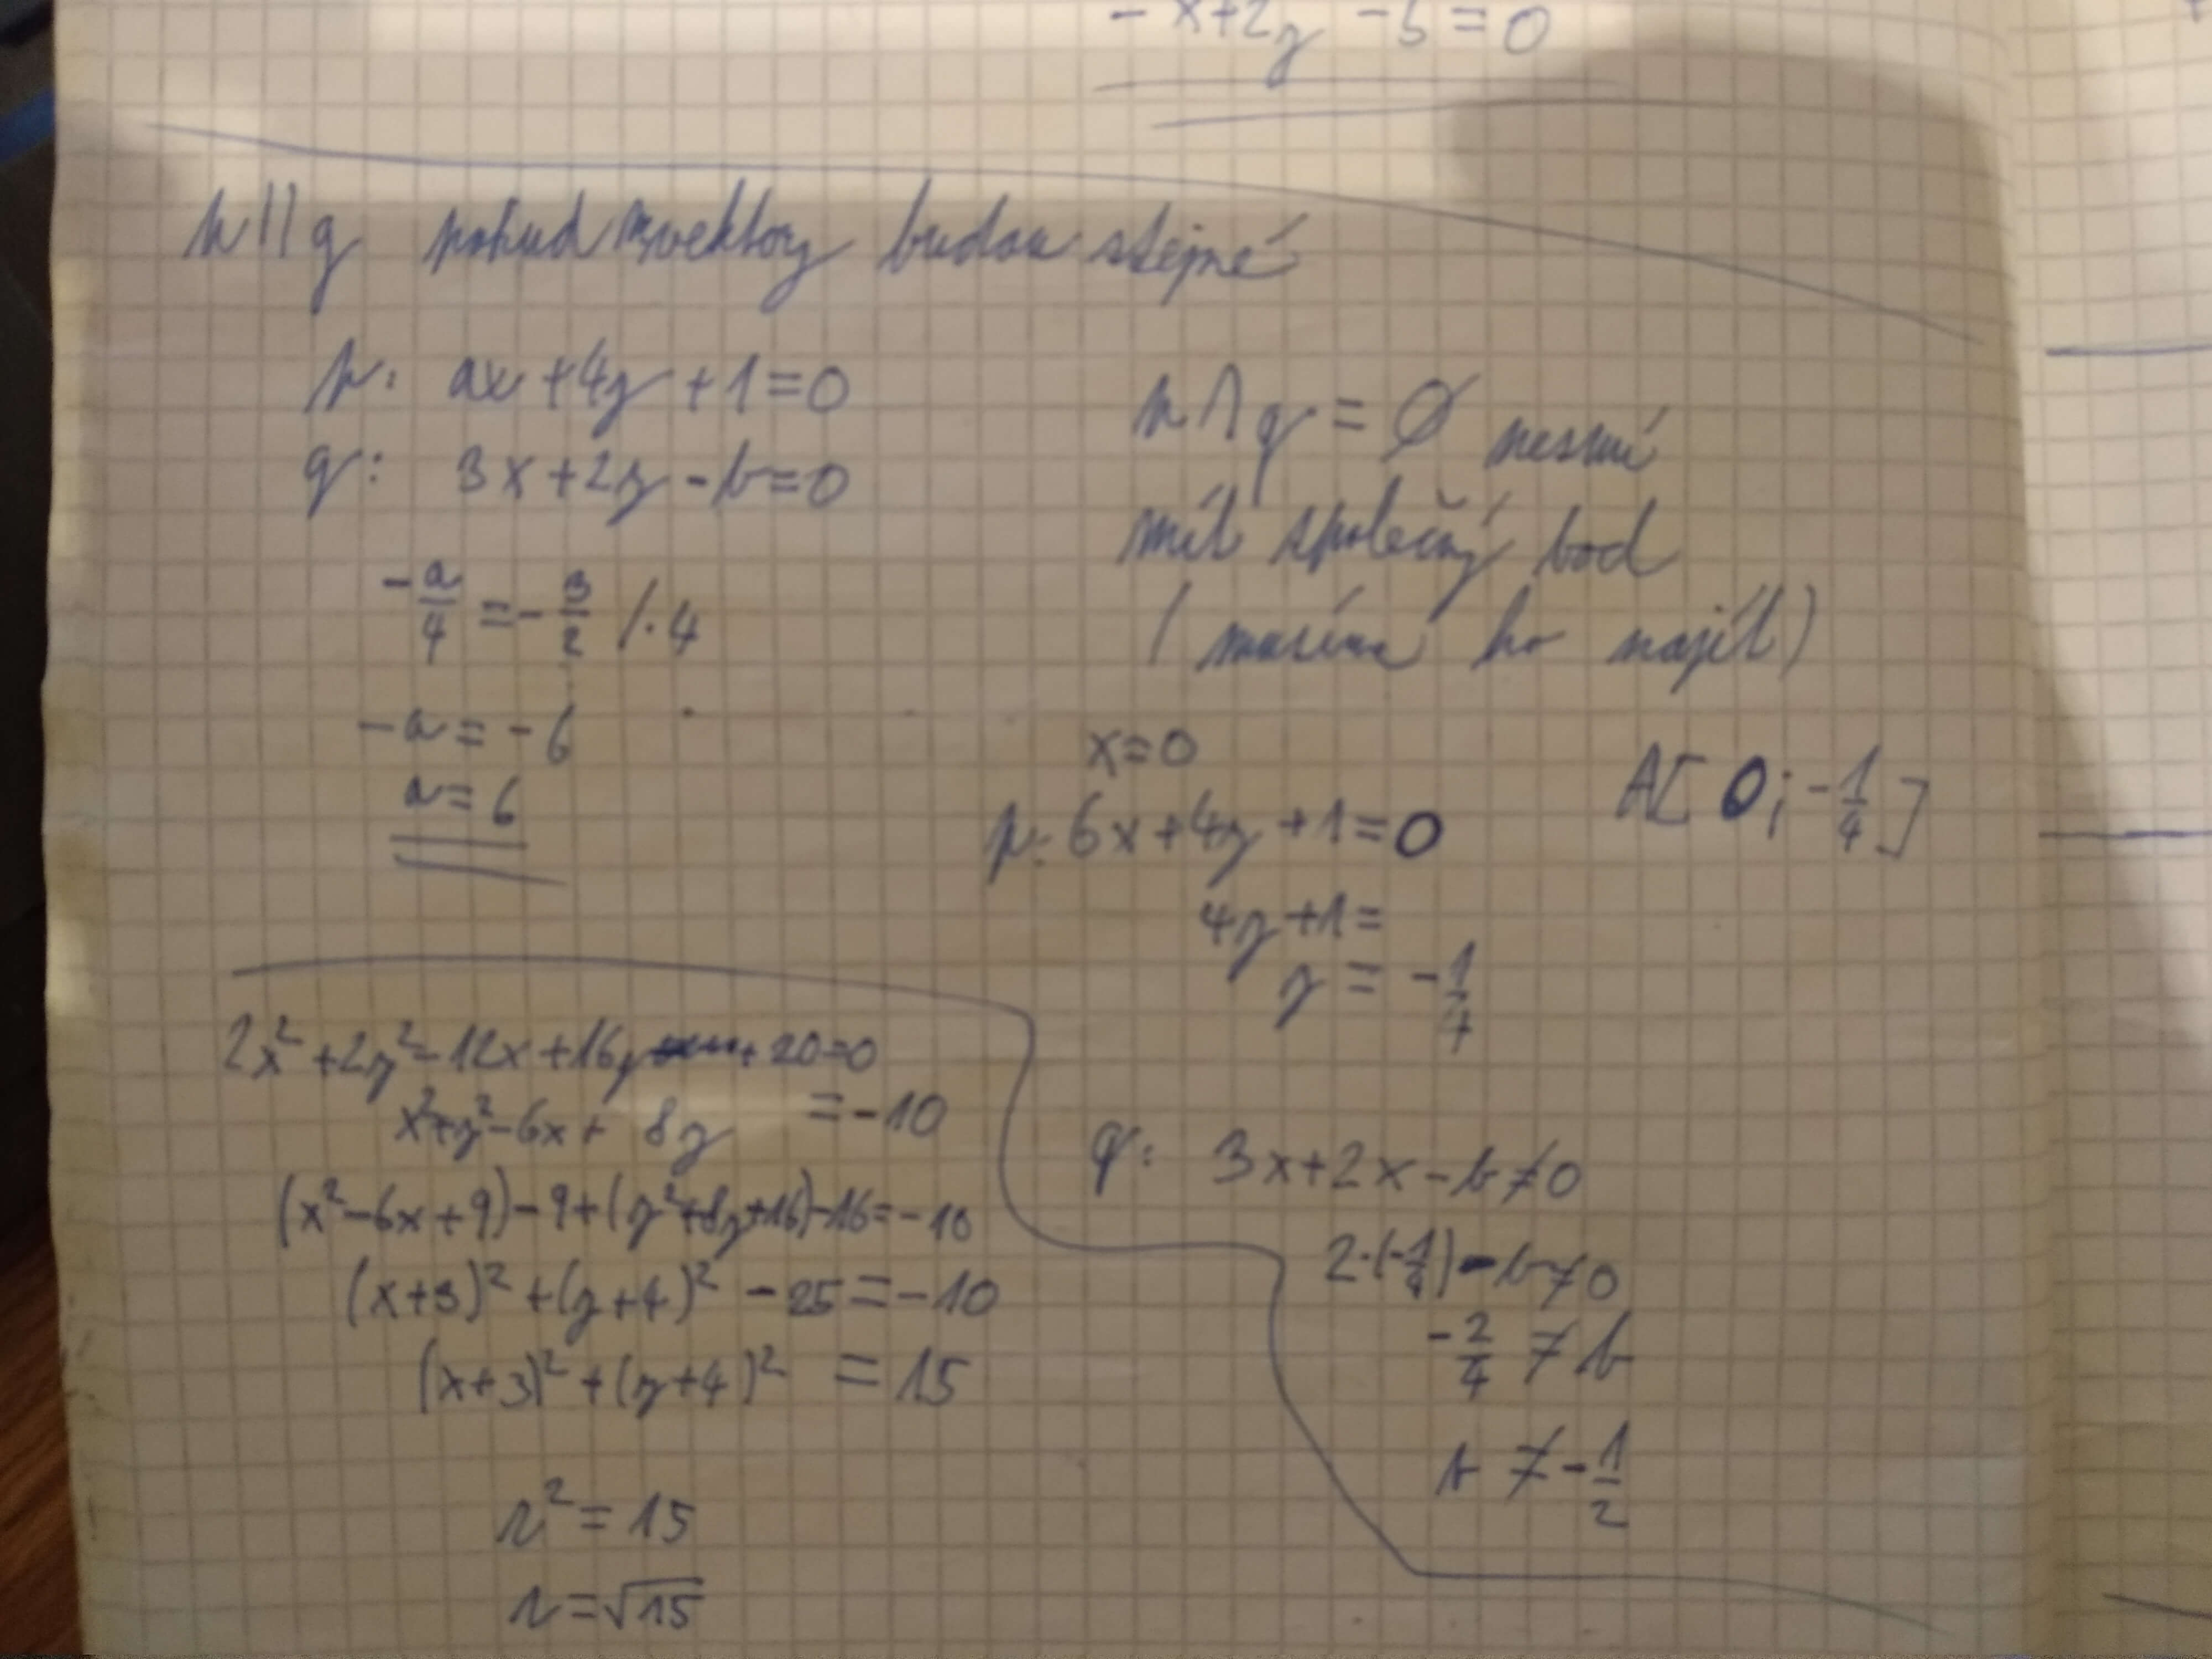 -x+2y -5=0
p||q pokud vektory budou stejné
p: ax+4y+1=0
q: 3x+2y-b=0
-a/4 = -3/2 /·4
-a=-6
a=6
p∩q = ∅ nesmí
mít společný bod
(musíme ho najít)
x=0
A[0;-1/4]
p: 6x+4y+1=0
4y+1=
y = -1/4
q: 3x+2x-b≠0
2·(-1/4)-b≠0
-2/4 ≠ b
b ≠ -1/2
2x²+2y²-12x+16y+20=0
x²+y²-6x+8y =-10
(x²-6x+9)-9+(y²+8y+16)-16=-10
(x+3)²+(y+4)²-25=-10
(x+3)²+(y+4)² =15
r²=15
r=√15